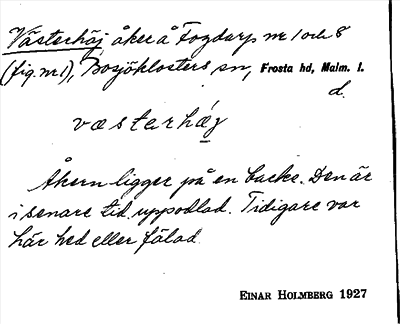 Västerhöj åker å Fogdarp nr 1 och 8
(fig. nr 1), Bosjöklosters sn, Frosta hd, Malm. l.
d.
væstarhǽg
Åkern ligger på en backe. Den är
i senare tid uppodlad. Tidigare var
här hed eller fälad.
EINAR HOLMBERG 1927